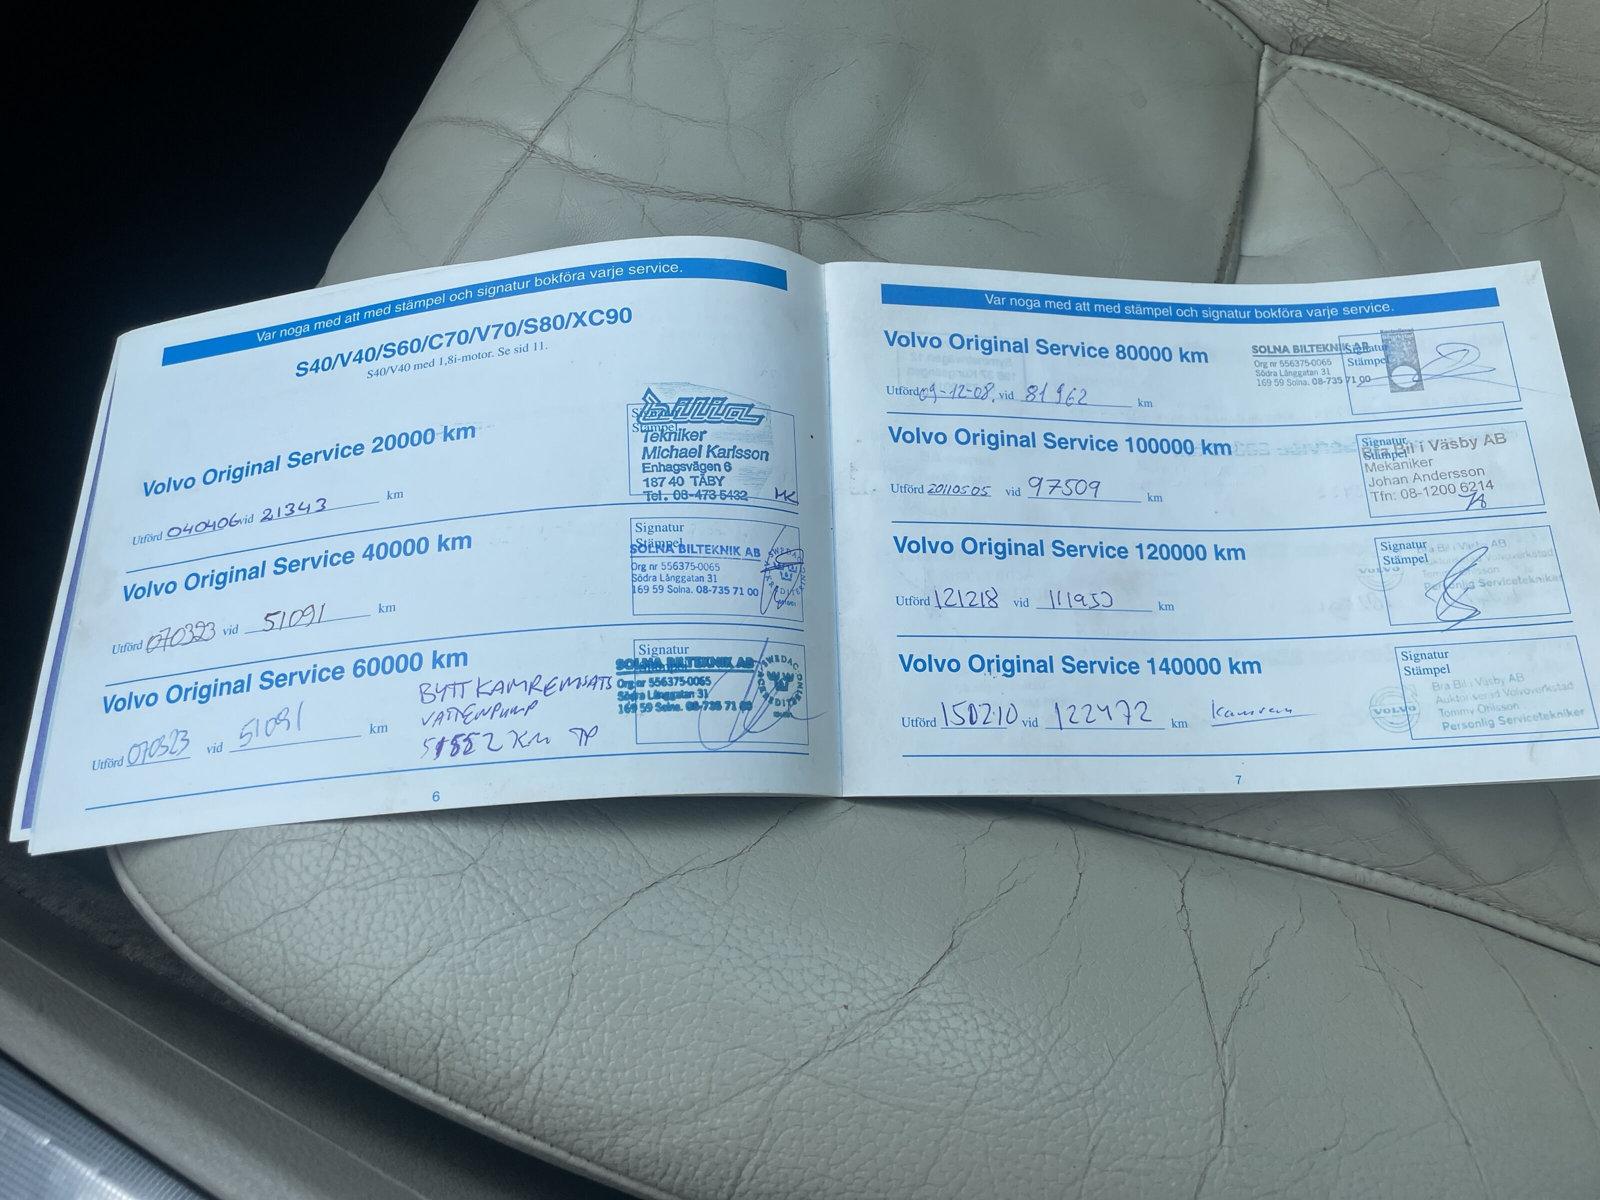 Var noga med att med stämpel och signatur bokföra varje service.
S40/V40/S60/C70/V70/S80/XC90
S40/V40 med 1,8i-motor. Se sid 11.
Volvo Original Service 20000 km
Utförd 040406 vid 21343 km
Signatur
Stämpel
bilia
Tekniker
Michael Karlsson
Enhagsvägen 6
187 40 TÄBY
Tel. 08-473 5432 MK
Volvo Original Service 40000 km
Utförd 070323 vid 51091 km
Signatur
Stämpel
SOLNA BILTEKNIK AB
Org nr 556375-0065
Södra Långgatan 31
169 59 Solna. 08-735 71 00
SWEDAC
Volvo Original Service 60000 km
Utförd 070323 vid 51091 km
BYTT KAMREMSATS
VATTENPUMP
51552 Km TP
Signatur
SOLNA BILTEKNIK AB
Org nr 556375-0065
Södra Långgatan 31
169 59 Solna. 08-735 71 00
SWEDAC ACKREDITERING
6
Var noga med att med stämpel och signatur bokföra varje service.
Volvo Original Service 80000 km
Utförd 09-12-08. vid 81962 km
SOLNA BILTEKNIK AB
Org nr 556375-0065
Södra Långgatan 31
169 59 Solna. 08-735 71 00
Signatur
Stämpel
Volvo Original Service 100000 km
Utförd 20110505 vid 97509 km
Signatur
Stämpel
Bra Bil i Väsby AB
Mekaniker
Johan Andersson
Tfn: 08-1200 6214
Volvo Original Service 120000 km
Utförd 121218 vid 111950 km
Signatur
Stämpel
VOLVO
Bra Bil i Väsby AB
Personlig Servicetekniker
Volvo Original Service 140000 km
Utförd 150210 vid 122472 km Kamrem
Signatur
Stämpel
VOLVO
Bra Bil i Väsby AB
Auktoriserad Volvoverkstad
Tommy Ohlsson
Personlig Servicetekniker
7